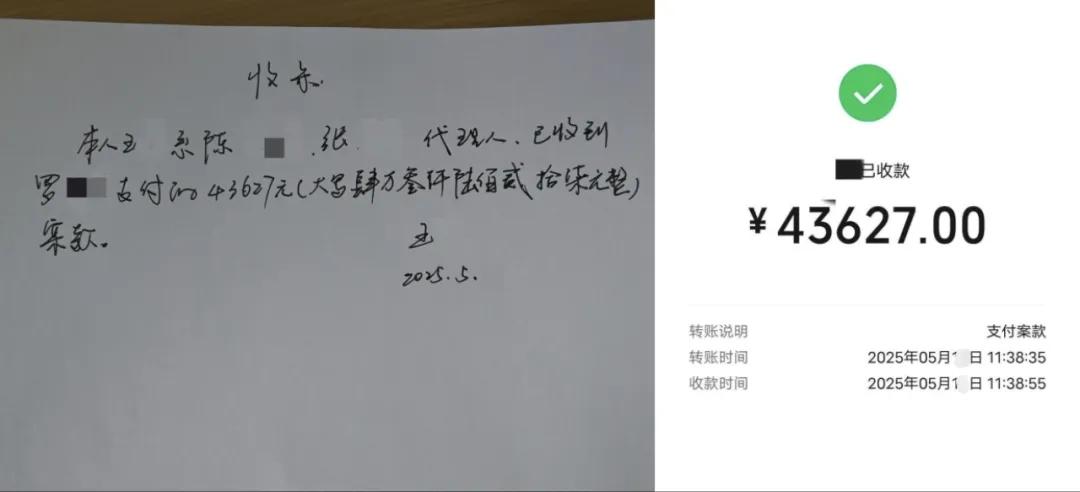 收条
本人王 系陈 张 代理人,已收到
罗 支付的43627元(大写肆万叁仟陆佰贰拾柒元整)
案款。
王
2025.5.
已收款
¥43627.00
转账说明 支付案款
转账时间 2025年05月1 日 11:38:35
收款时间 2025年05月1 日 11:38:55